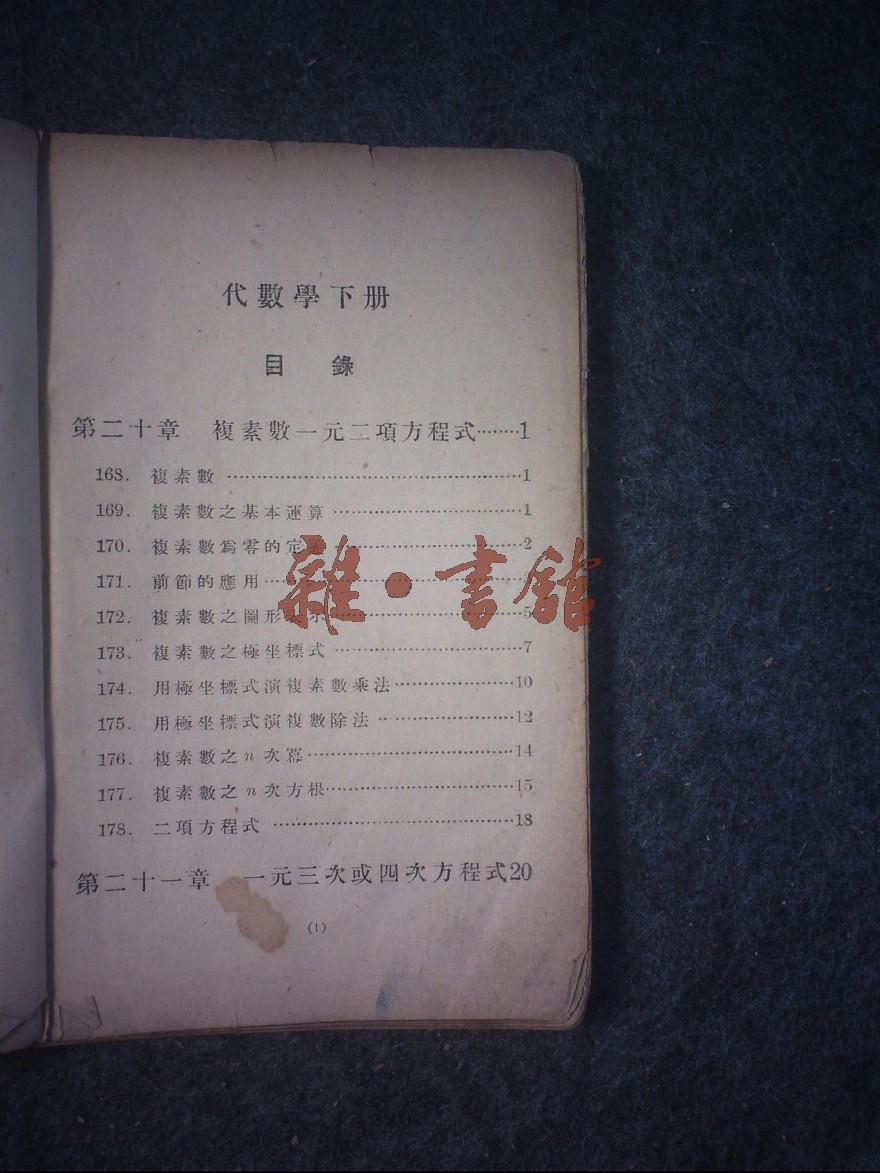 代數學下册
目錄
第二十章 複素數一元二項方程式········1
168. 複素數 ················································1
169. 複素數之基本運算 ································1
170. 複素數爲零的定 ································2
171. 前節的應用
172. 複素數之圖形表示 ································5
173. 複素數之極坐標式 ································7
174. 用極坐標式演複素數乘法····················10
175. 用極坐標式演複數除法 ······················12
176. 複素數之n次冪··································14
177. 複素數之n次方根·······························15
178. 二項方程式 ········································18
第二十一章 一元三次或四次方程式20
(1)
雜·書館